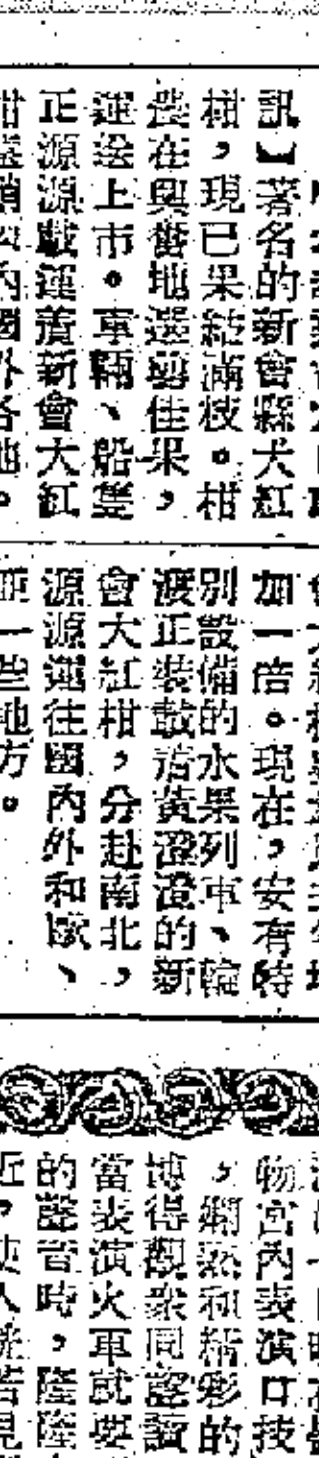 訊】著名的新會縣大紅
柑,現已果結滿枝。柑
農在與當地選剪佳果,
運送上市。車輛、船隻
正源源載運着新會大紅
國外各地。
加一倍。現在,安有特
別設備的水果列車、輪
渡正裝載着黃澄澄的新
會大紅柑,分赴南北,
源源運往國內外和歐、
亞一些地方。
物宮內表演口技
,嫻熟和精彩的
博得觀衆同聲讚
當表演火車就要
的聲音時,隆隆
近,使人